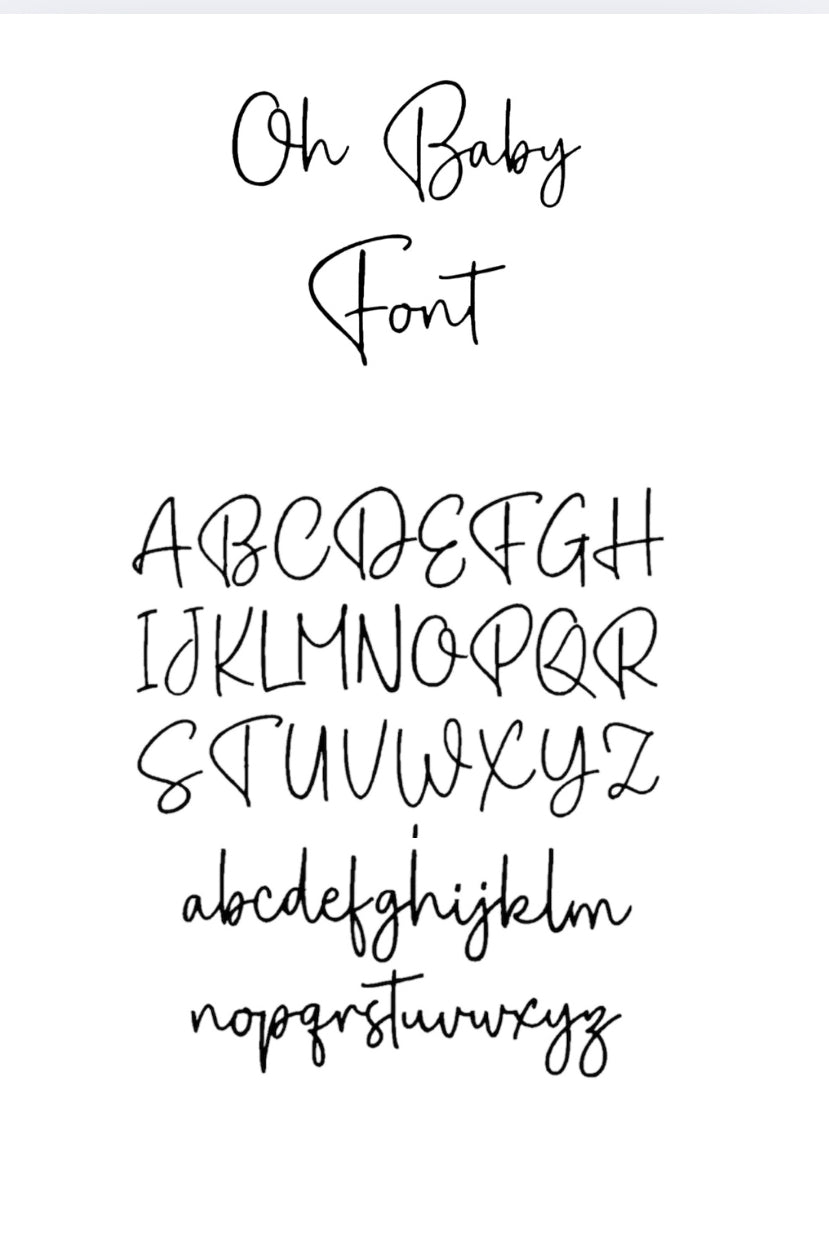 Oh Baby
Font
ABCDEFGH
IJKLMNOPQR
STUVWXYZ
abcdefghijklm
nopqrstuvwxyz